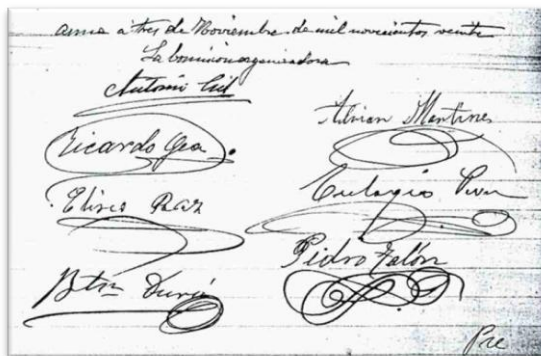 a tres de Noviembre de mil novecientos veinte
La comisión organizadora
Antonio Gil
Adrian Martines
Ricardo Gea
Eulogio
Eliseo Paz
Pedro Falcón
Btén Durá
Pre